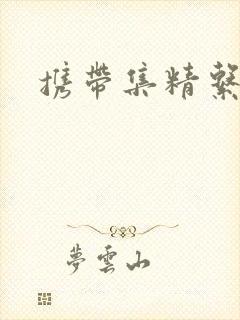 携带集精繫
夢雲山